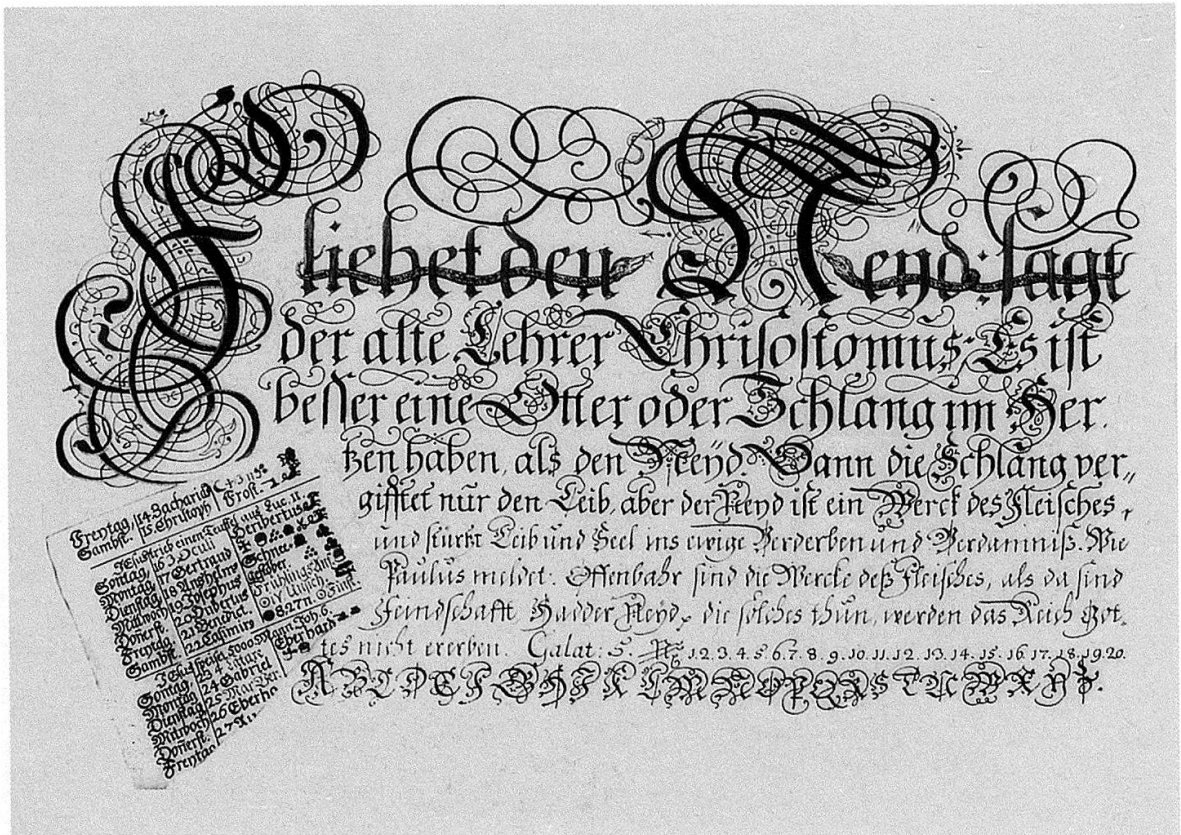 Fliehet den Neyd: sagt
der alte Lehrer Chrisostomus: Es ist
besser eine Otter oder Schlang im Her.
tzen haben, als den Neyd. Dann die Schlang ver„
gifftet nur den Leib, aber der Neyd ist ein Werck des Fleisches,
und stürtzt Leib und Seel ins ewige Verderben und Verdamniß. Wie
Paulus meldet. Offenbahr sind die Wercke deß Fleisches, als da sind
Feindschafft Hadder Neyd, die solches thun, werden das Reich Got.
tes nicht ererben. Galat: 5. 1. 2. 3. 4. 5. 6. 7. 8. 9. 10. 11. 12. 13. 14. 15. 16. 17. 18. 19. 20.
A B C D E F G H I K L M N O P Q R S T U W X Y Z.
Freytag 14 Zacharias
Samst. 15 Christoph Frost.
JEsus trieb einen Teuffel aus Luc. 11.
Sontag, 16 3 Oculi Heribertus
Montag, 17 Gertraud
Dienstag 18 Anshelm Schnee
Mittwoch 19 Josephus
Donerst. 20 Hubertus Frühlings
Freytag. 21 Benedict.
Samst. 22 Casimirs 8. 27 n.
JEsus speiset 5000 Mann, Joh. 6.
Sontag, 23 4 Lätare Eberhard
Montag 24 Gabriel
Dienstag 25 Mar. Ver.
Mitwoch 26 Eberha
Donerst. 27
Freytag